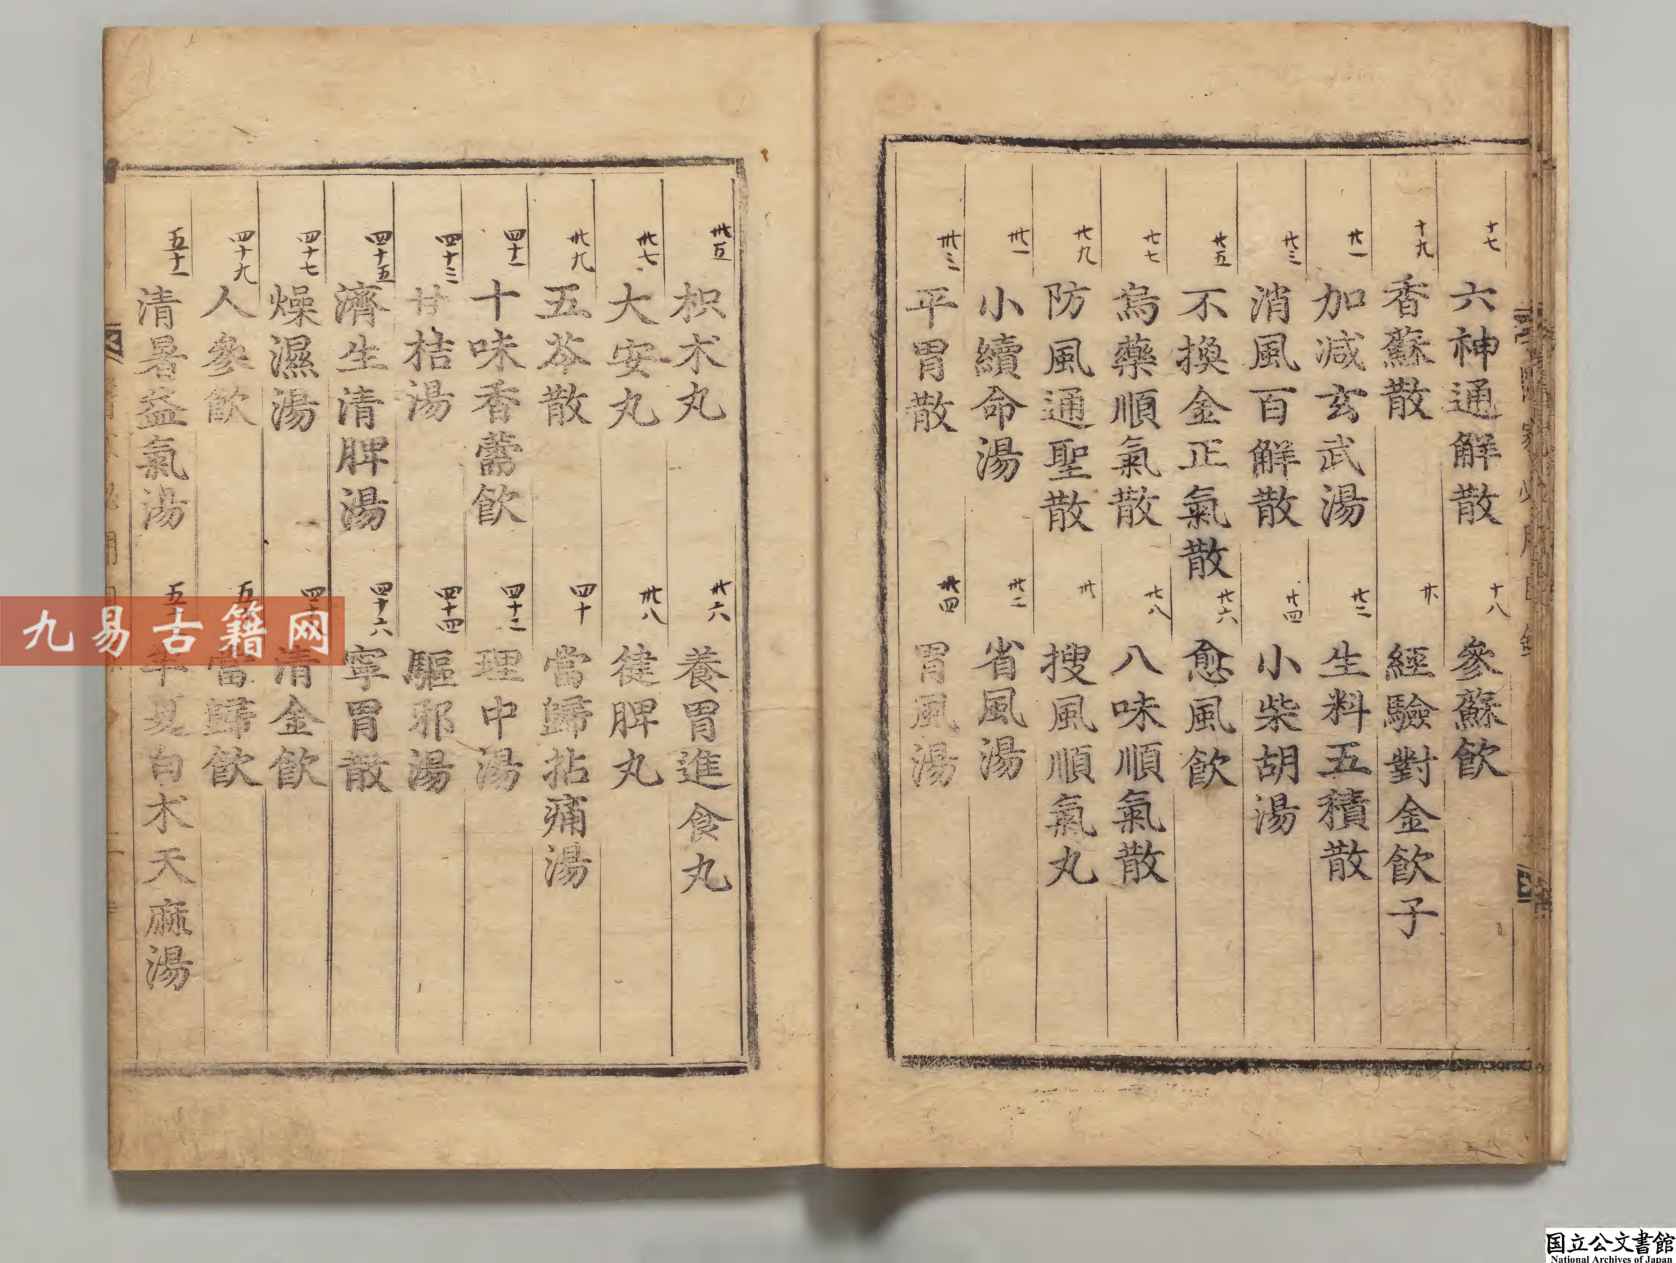 十七 六神通解散 十八 參蘇飲
十九 香蘇散 廿 經驗對金飲子
廿一 加减玄武湯 廿二 生料五積散
廿三 消風百解散 廿四 小柴胡湯
廿五 不換金正氣散 廿六 愈風飲
廿七 烏藥順氣散 廿八 八味順氣散
廿九 防風通聖散 卅 搜風順氣丸
卅一 小續命湯 卅二 省風湯
卅三 平胃散 卅四 胃風湯
卅五 枳朮丸 卅六 養胃進食丸
卅七 大安丸 卅八 健脾丸
卅九 五苓散 四十 當歸拈痛湯
四十一 十味香薷飲 四十二 理中湯
四十三 甘桔湯 四十四 驅邪湯
四十五 濟生清脾湯 四十六 寧胃散
四十七 燥濕湯 清金飲
四十九 人參飲 當歸飲
五十一 清暑益氣湯 半夏白朮天麻湯
九易古籍网
国立公文書館
National Archives of Japan